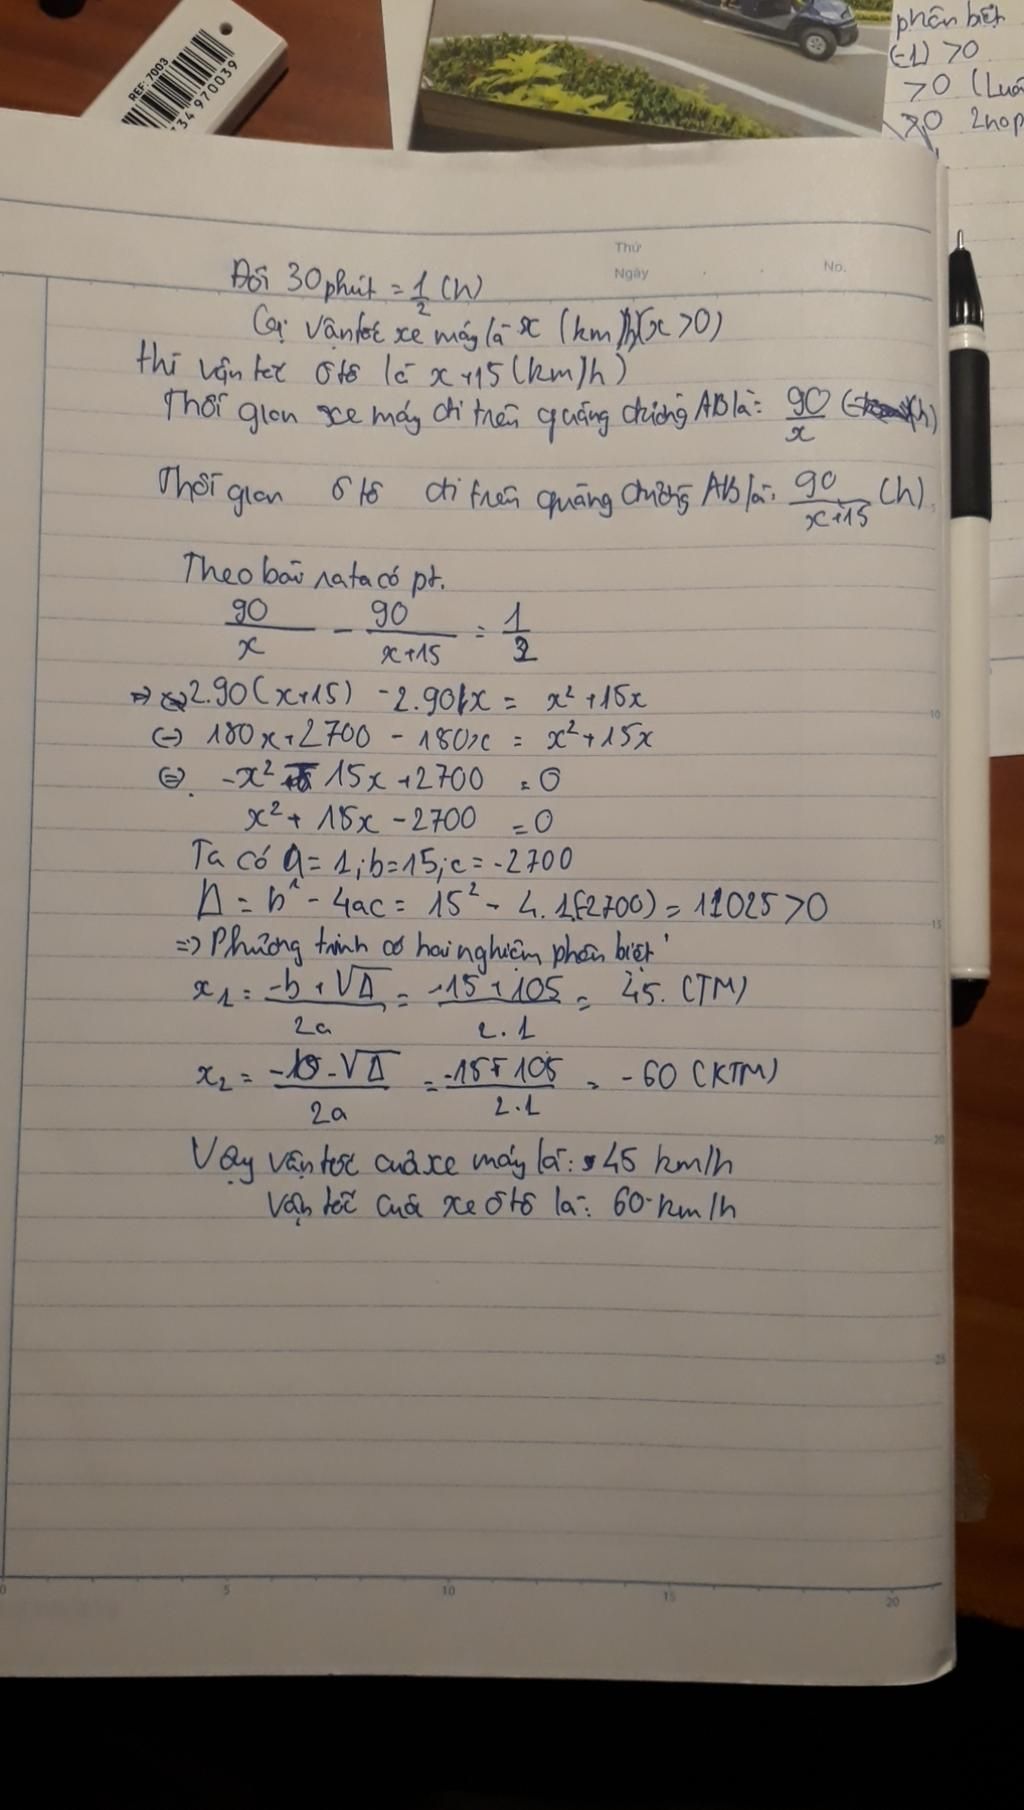 REF: 7003
734970039
phân biệt
(-1) >0
>0 (Luô
>0 2 nop
Thứ
Ngày
No.
Đổi 30 phút = 1/2 (h)
Gọi vận tốc xe máy là x (km/h)(x >0)
thì vận tốc ôtô là x+15 (km/h)
Thời gian xe máy đi trên quãng đường AB là: 90/x (h)
Thời gian ôtô đi trên quãng đường AB là: 90/x+15 (h)
Theo bài ra ta có pt.
90/x - 90/x+15 = 1/2
=> 2.90(x+15) - 2.90x = x² + 15x
(=) 180x + 2700 - 180x = x² + 15x
(=) -x² - 15x + 2700 = 0
x² + 15x - 2700 = 0
Ta có a = 1; b = 15; c = -2700
Δ = b² - 4ac = 15² - 4.1(-2700) = 11025 >0
=> Phương trình có hai nghiệm phân biệt
x₁ = -b + √Δ/2a = -15 + 105/2.1 = 45. (TM)
x₂ = -b - √Δ/2a = -15 - 105/2.1 = -60 (KTM)
Vậy vận tốc của xe máy là: 45 km/h
Vận tốc của xe ôtô là: 60 km/h
10
15
20
25
0 5 10 15 20